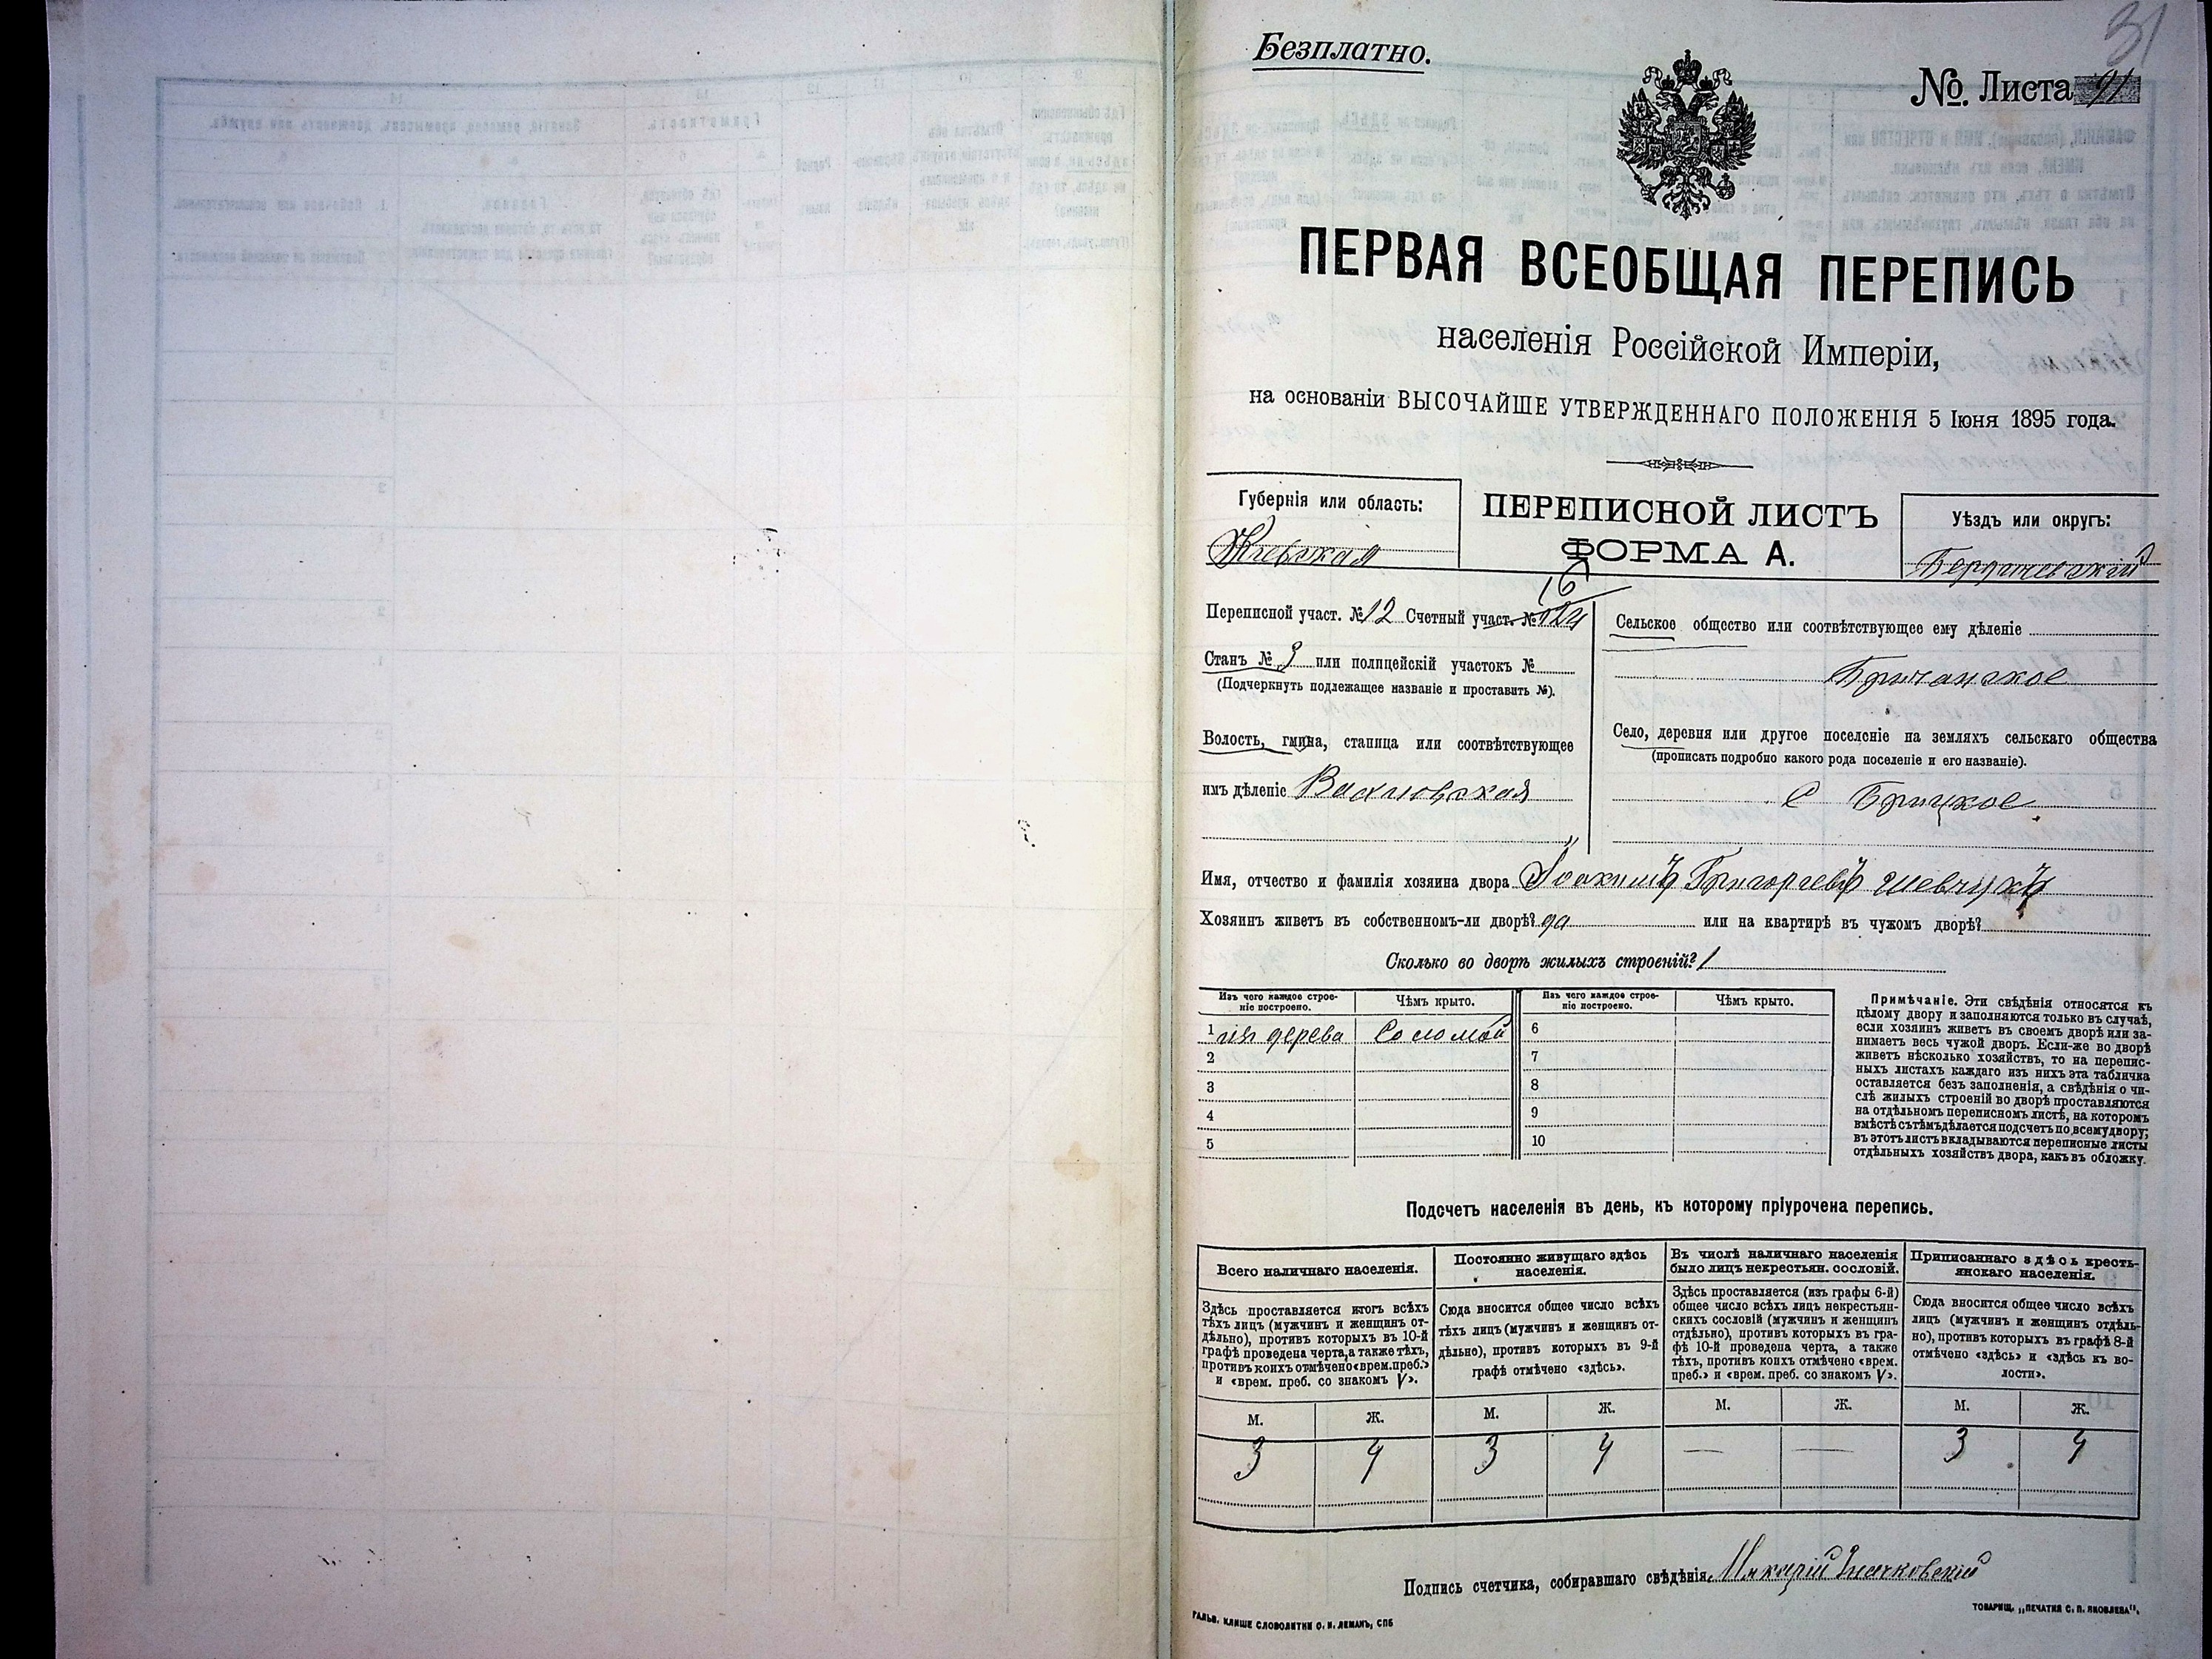 31
Безплатно.
№ Листа 91
ПЕРВАЯ ВСЕОБЩАЯ ПЕРЕПИСЬ
населенія Россійской Имперіи,
на основаніи ВЫСОЧАЙШЕ УТВЕРЖДЕННАГО ПОЛОЖЕНІЯ 5 Іюня 1895 года.
Губернія или область:
Кіевская
ПЕРЕПИСНОЙ ЛИСТЪ
ФОРМА А.
Уѣздъ или округъ:
Бердичевскій
16
Переписной участ. № 12 Счетный участ. № 124
Станъ № 3 или полицейскій участокъ №
(Подчеркнуть подлежащее названіе и проставить №).
Волость, гмина, станица или соотвѣтствующее
имъ дѣленіе Вахновская
Сельское общество или соотвѣтствующее ему дѣленіе
Бричанское
Село, деревня или другое поселеніе на земляхъ сельскаго общества
(прописать подробно какого рода поселеніе и его названіе).
С Брицкое
Имя, отчество и фамилія хозяина двора Іоакимъ Григорьевъ Шевчукъ
Хозяинъ живетъ въ собственномъ-ли дворѣ? да или на квартирѣ въ чужомъ дворѣ?
Сколько во дворѣ жилыхъ строеній? 1
Изъ чего каждое строе-
ніе построено.
Чѣмъ крыто.
Изъ чего каждое строе-
ніе построено.
Чѣмъ крыто.
1 изъ дерева Соломой 6
2 7
3 8
4 9
5 10
Примѣчаніе. Эти свѣдѣнія относятся къ
цѣлому двору и заполняются только въ случаѣ,
если хозяинъ живетъ въ своемъ дворѣ или за-
нимаетъ весь чужой дворъ. Если-же во дворѣ
живетъ нѣсколько хозяйствъ, то на перепис-
ныхъ листахъ каждаго изъ нихъ эта табличка
оставляется безъ заполненія, а свѣдѣнія о чи-
слѣ жилыхъ строеній во дворѣ проставляются
на отдѣльномъ переписномъ листѣ, на которомъ
вмѣстѣ съ тѣмъ дѣлается подсчетъ по всему двору;
въ этотъ листъ вкладываются переписные листы
отдѣльныхъ хозяйствъ двора, какъ въ обложку.
Подсчетъ населенія въ день, къ которому пріурочена перепись.
Всего наличнаго населенія.
Здѣсь проставляется итогъ всѣхъ
тѣхъ лицъ (мужчинъ и женщинъ от-
дѣльно), противъ которыхъ въ 10-й
графѣ проведена черта, а также тѣхъ,
противъ коихъ отмѣчено «врем. преб.»
и «врем. преб. со знакомъ V».
Постоянно живущаго здѣсь
населенія.
Сюда вносится общее число всѣхъ
тѣхъ лицъ (мужчинъ и женщинъ от-
дѣльно), противъ которыхъ въ 9-й
графѣ отмѣчено «здѣсь».
Въ числѣ наличнаго населенія
было лицъ некрестьян. сословій.
Здѣсь проставляется (изъ графы 6-й)
общее число всѣхъ лицъ некрестьян-
скихъ сословій (мужчинъ и женщинъ
отдѣльно), противъ которыхъ въ гра-
фѣ 10-й проведена черта, а также
тѣхъ, противъ коихъ отмѣчено «врем.
преб.» и «врем. преб. со знакомъ V».
Приписаннаго здѣсь кресть-
янскаго населенія.
Сюда вносится общее число всѣхъ
лицъ (мужчинъ и женщинъ отдѣль-
но), противъ которыхъ въ графѣ 8-й
отмѣчено «здѣсь» и «здѣсь къ во-
лости».
М. Ж. М. Ж. М. Ж. М. Ж.
3 4 3 4 — — 3 4
Подпись счетчика, собиравшаго свѣдѣнія,
ГАЛЬВ. КЛИШЕ СЛОВОЛИТНИ О. И. ЛЕМАНЪ, СПБ
ТОВАРИЩ. „ПЕЧАТНЯ С. П. ЯКОВЛЕВА“.